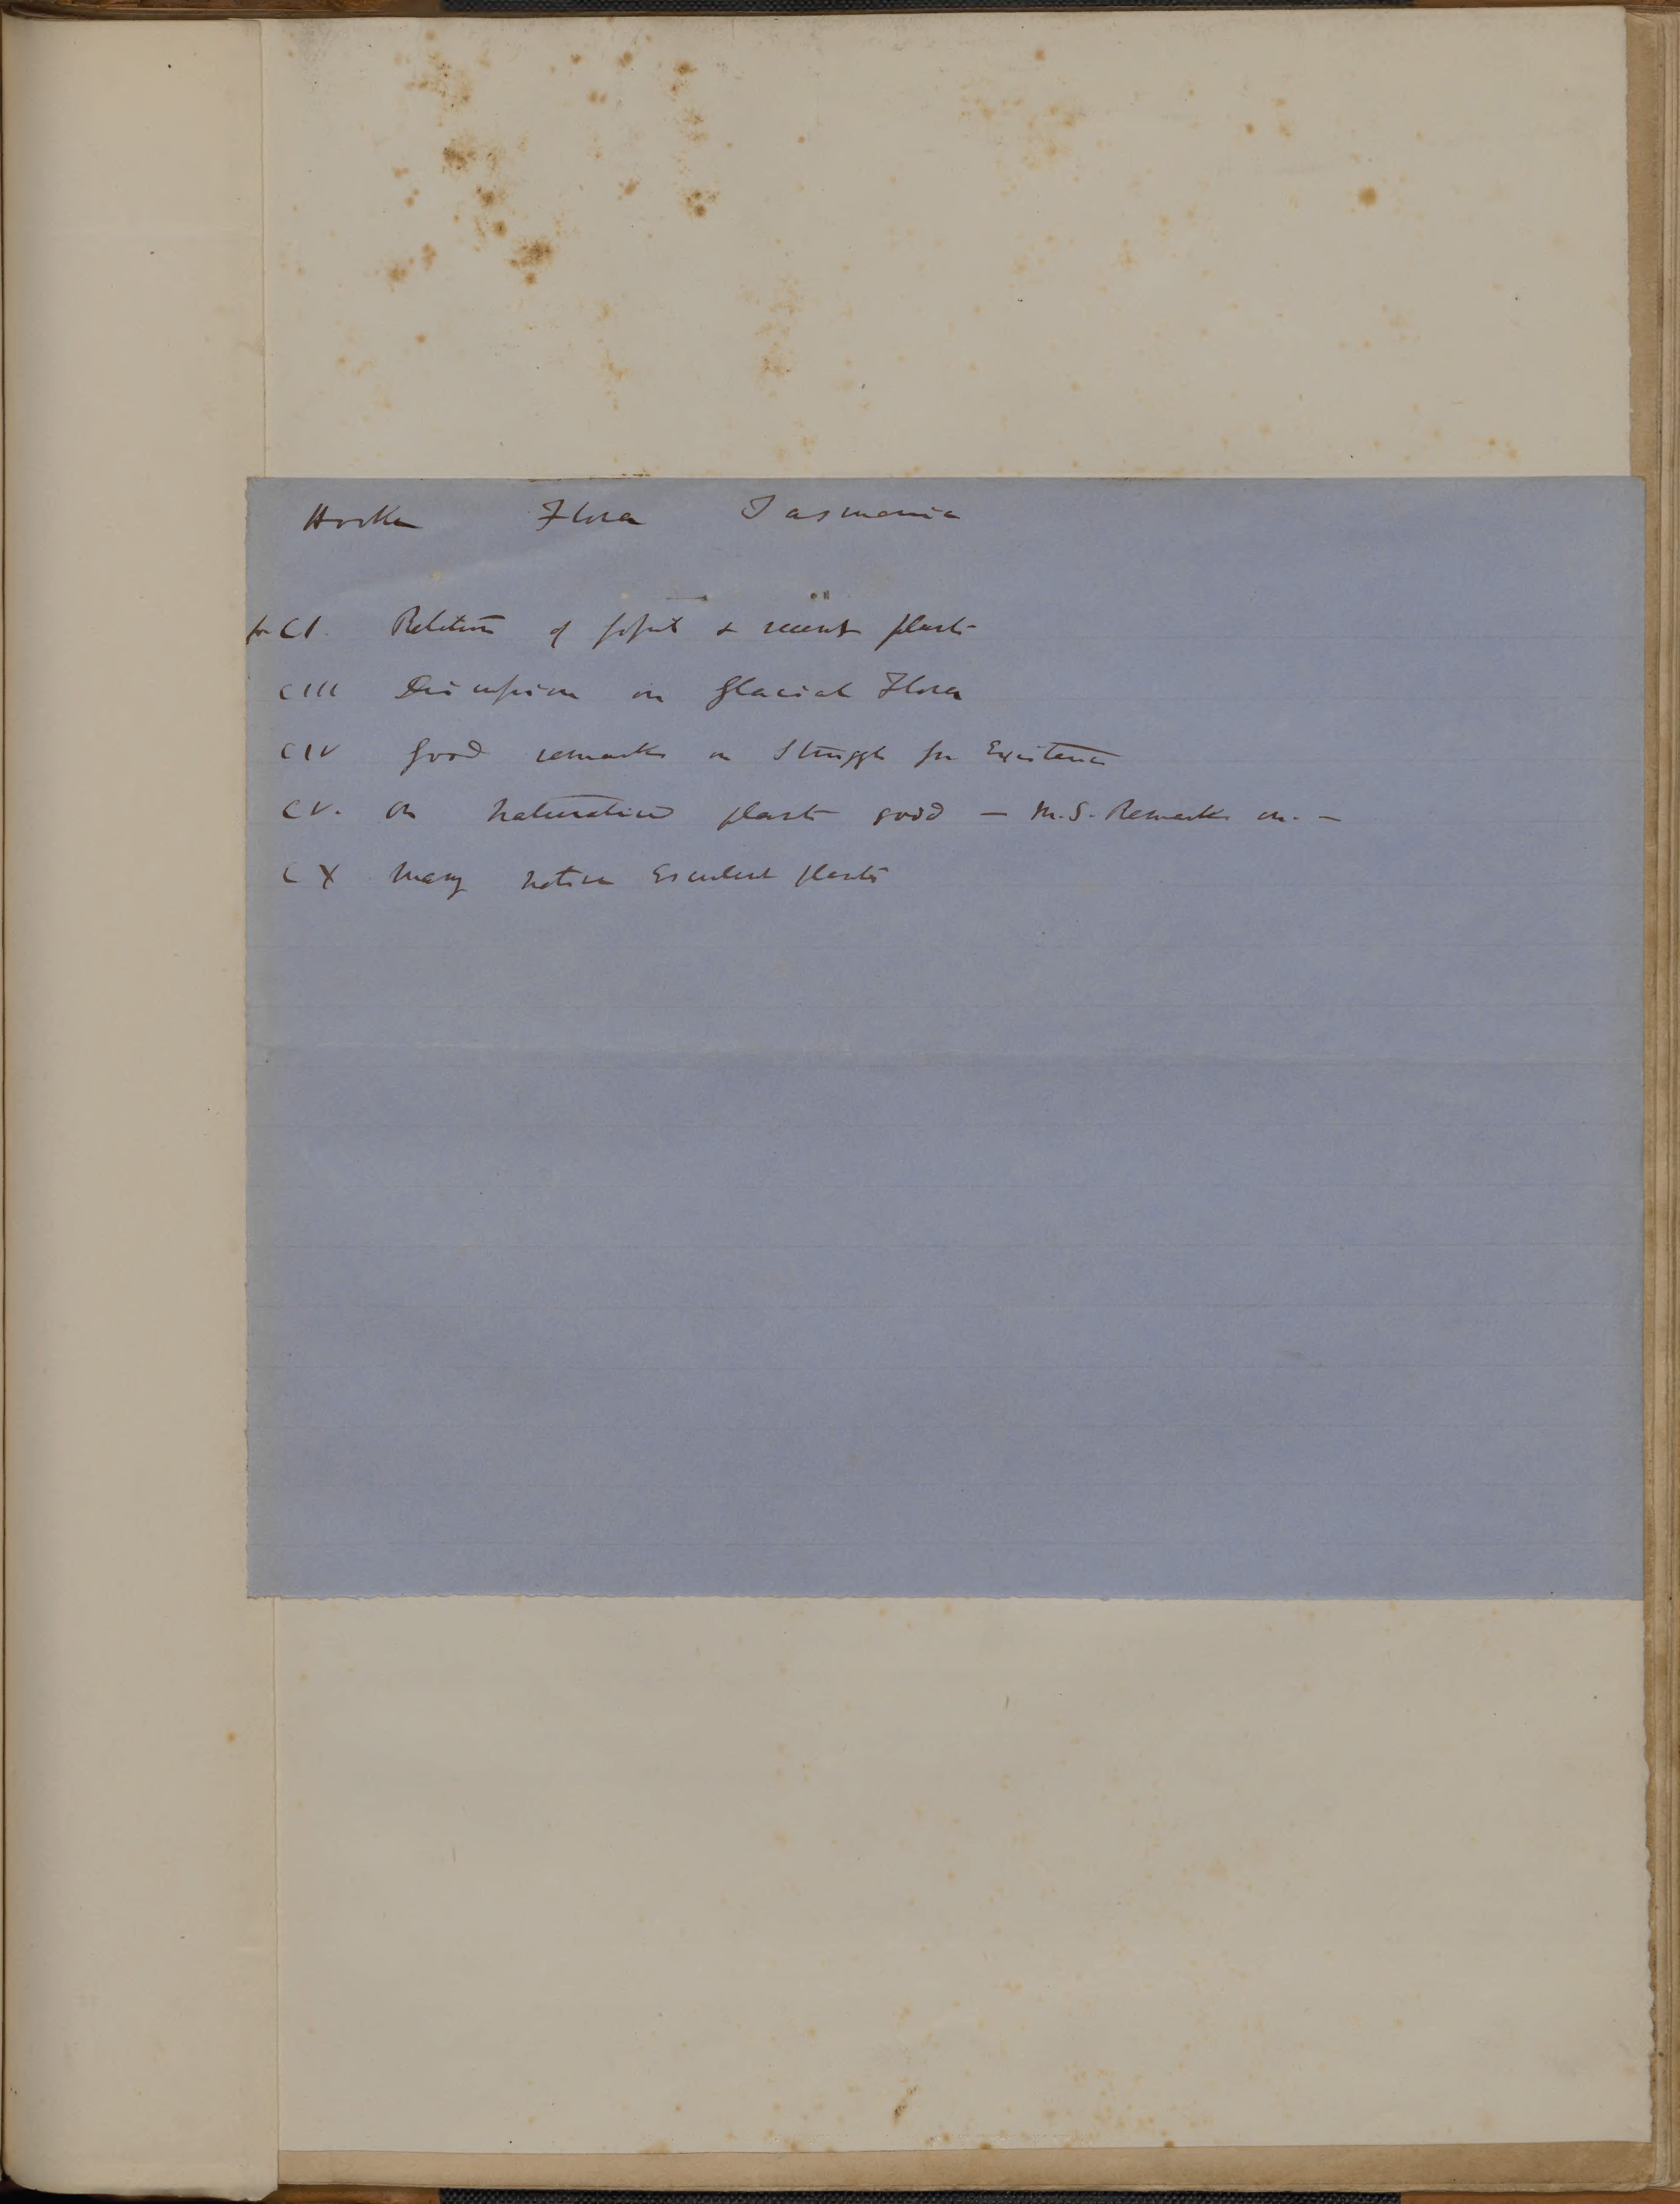 Hooker Flora Tasmania
p CI. Relation of fossil & recent plants
CIII Discussion on Glacial Flora
CIV Good remarks on Struggle for Existence
CV. On naturalised plants good — M.S. Remarks on. —
CX Many native Esculent plants